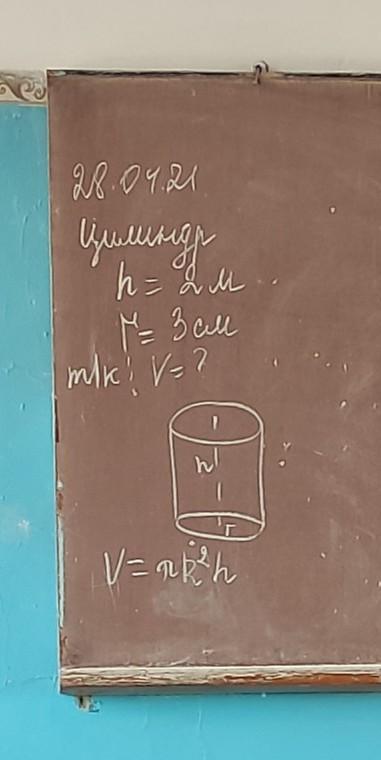 28.04.21
Цилиндр
h = 2 м
r = 3 см
т/к! V = ?
h
r
V = πR²h